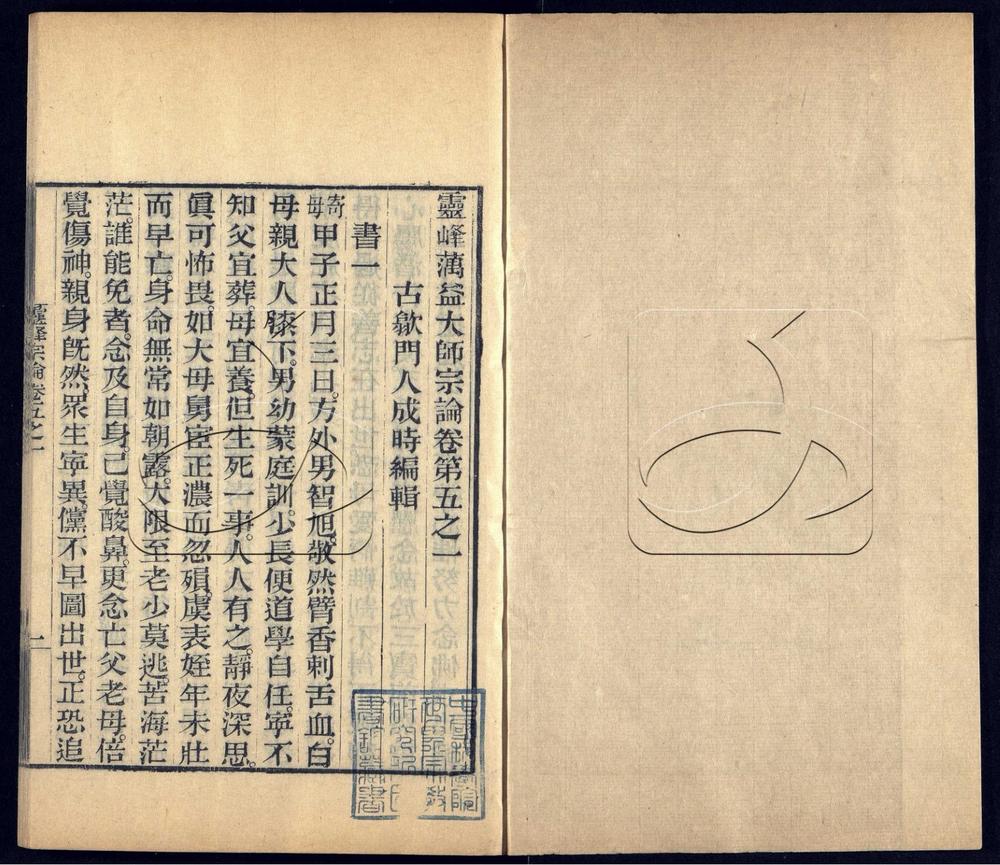 靈峰蕅益大師宗論卷第五之一
古歙門人成時編輯
書一
寄母
甲子正月三日。方外男智旭。敬然臂香刺舌血。白
母親大人膝下。男幼蒙庭訓。少長便道學自任。寧不
知父宜葬。母宜養。但生死一事。人人有之。靜夜深思。
眞可怖畏。如大母舅宦正濃而忽殞。虞表姪年未壯
而早亡。身命無常如朝露。大限至老少莫逃。苦海茫
茫。誰能免者。念及自身。已覺酸鼻。更念亡父老母。倍
覺傷神。親身旣然。眾生寧異。儻不早圖出世。正恐追
靈峰宗論卷五之一
一